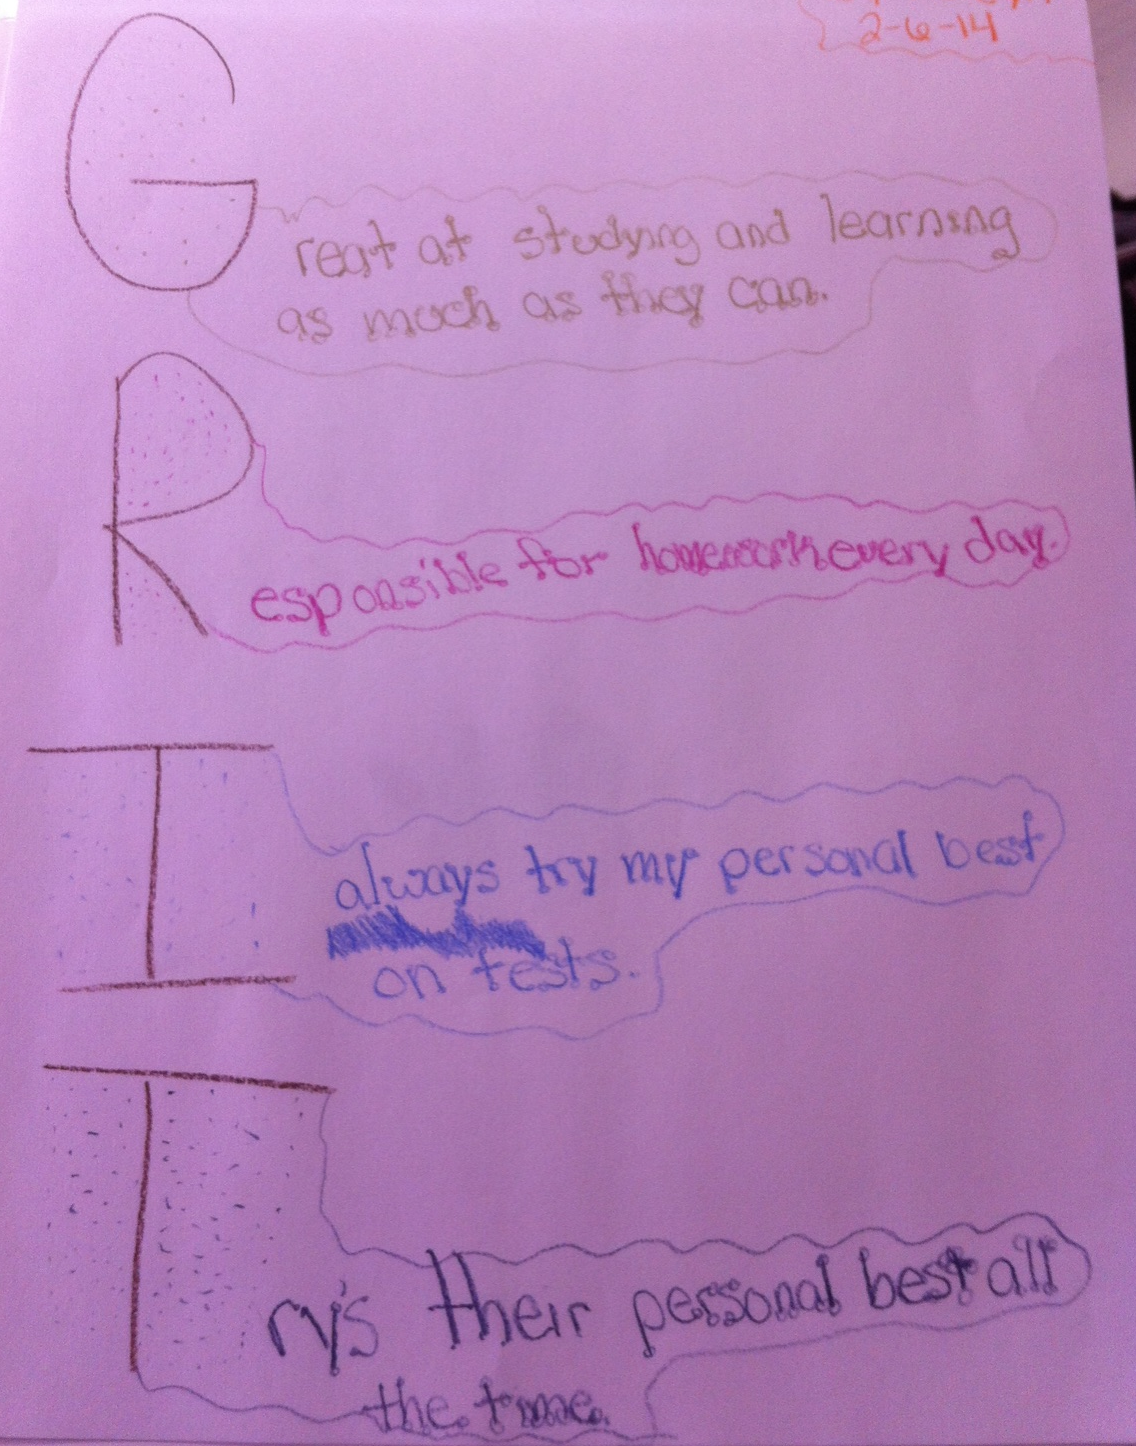 2-6-14
Great at studying and learning
as much as they can.
Responsible for homework every day.
I always try my personal best
on tests.
Try's their personal best all
the time.